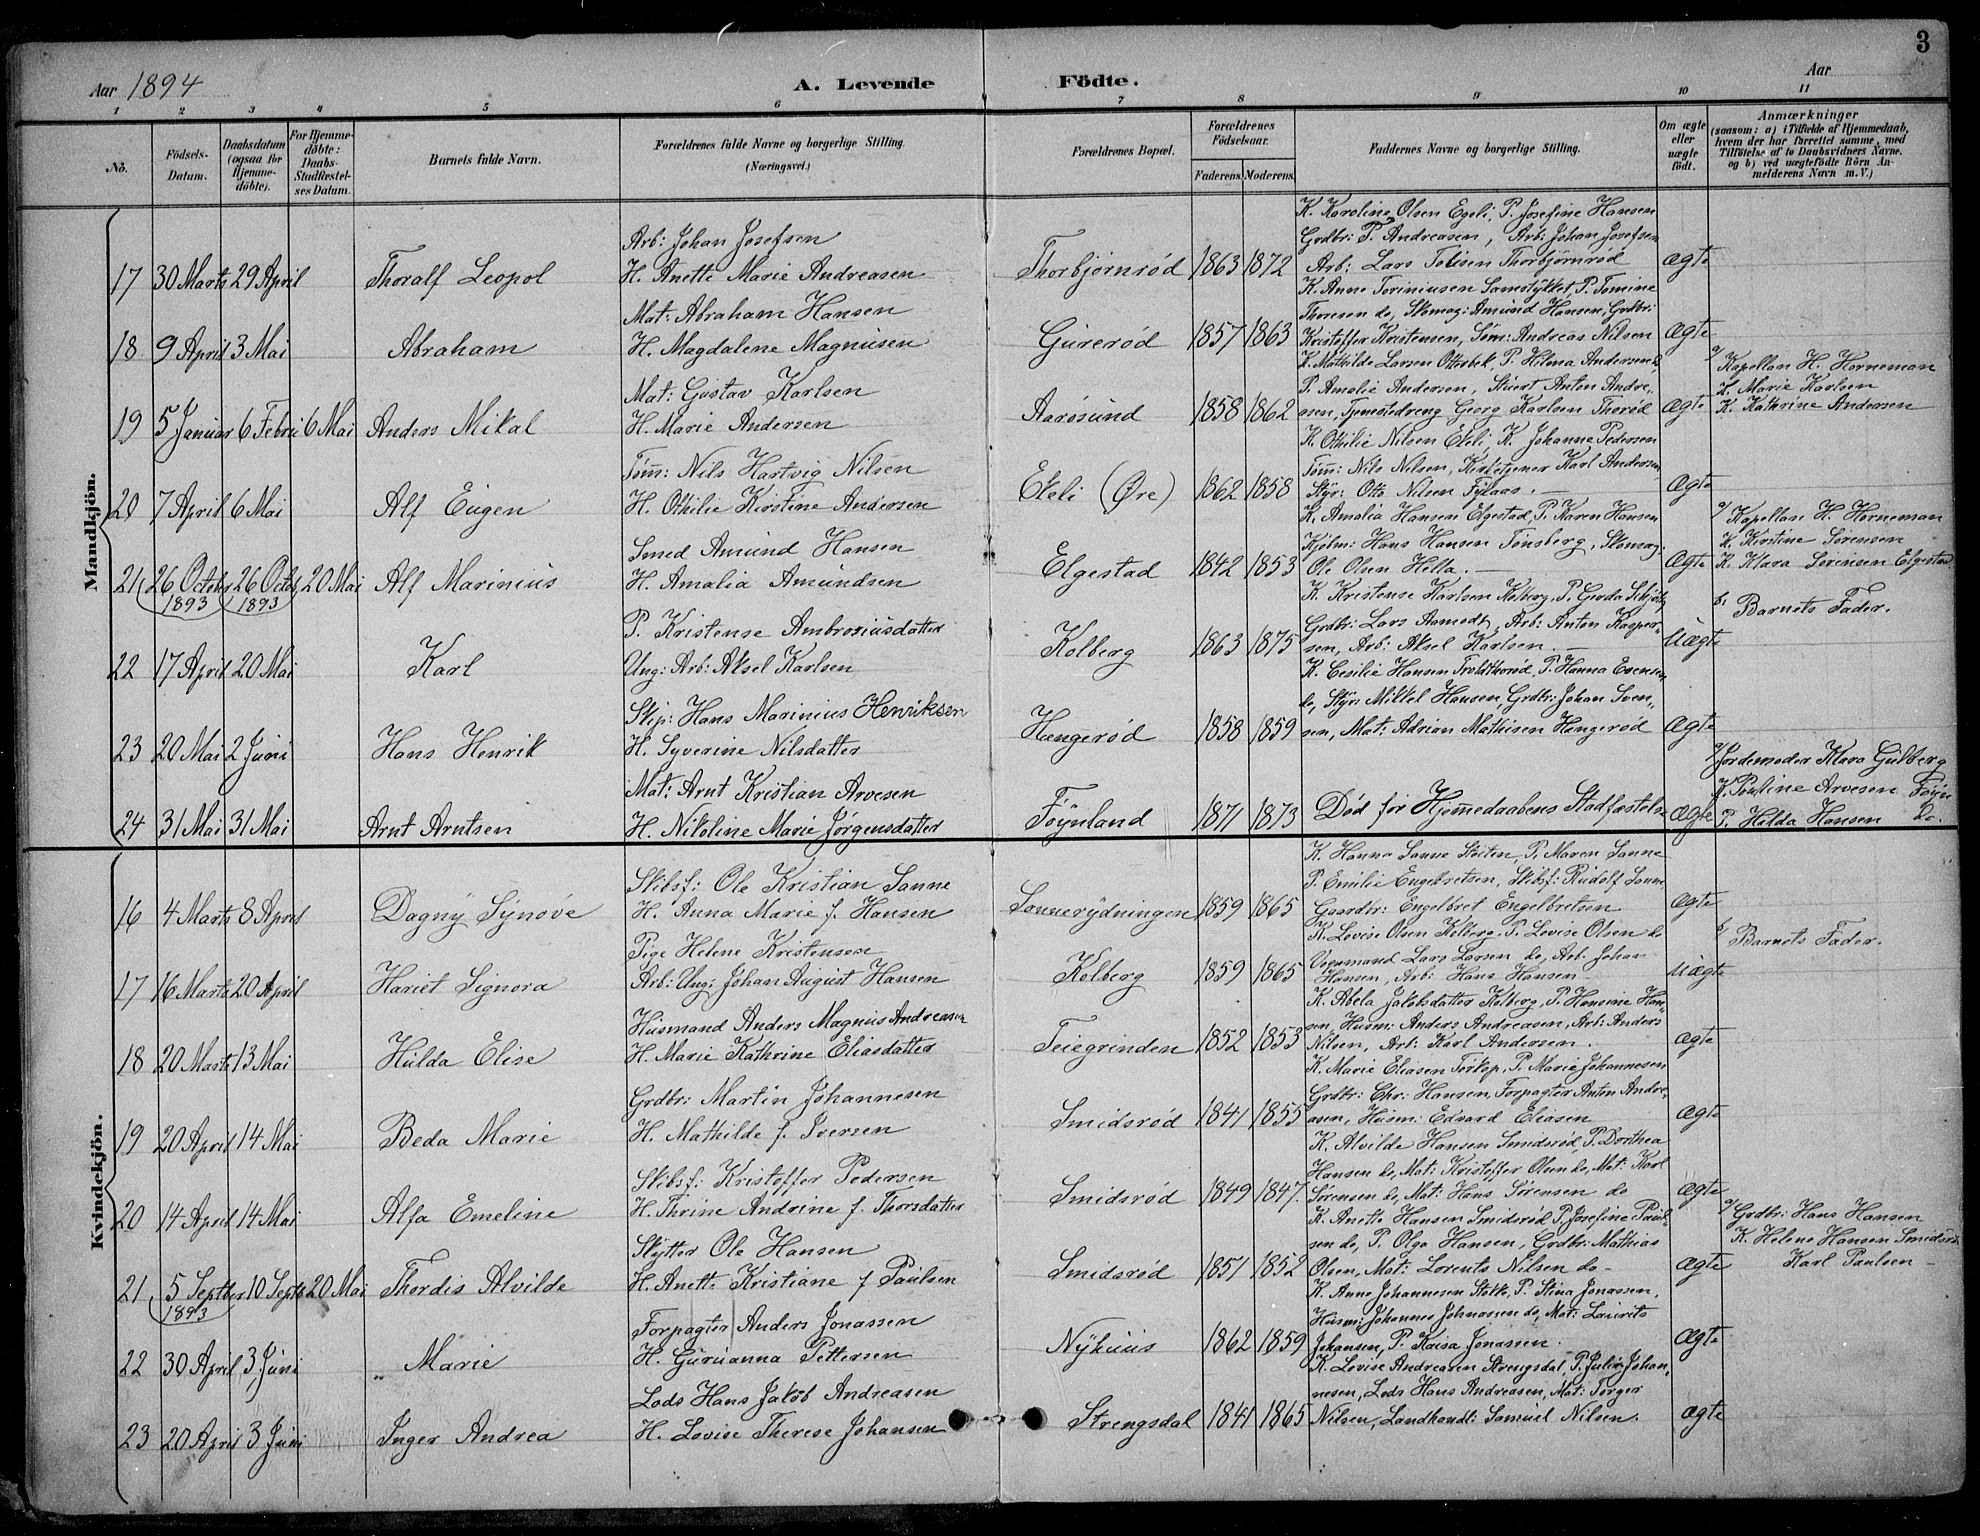 3
Aar 1894
A. Levende Födte.
Aar
1 2 3 4 5 6 7 8 9 10 11
No.
Födsels-Datum.
Daabsdatum (ogsaa for Hjemmedøbte).
For Hjemmedøbte: Daabs-Stadfæstelses Datum.
Barnets fulde Navn.
Forældrenes fulde Navne og borgerlige Stilling. (Næringsvei.)
Forældrenes Bopæl.
Forældrenes Födselsaar.
Faderens. Moderens.
Faddernes Navne og borgerlige Stilling.
Om ægte eller uægte födt.
Anmærkninger
(saasom: a) i Tilfælde af Hjemmedaab, hvem der har forrettet samme, med Tilföielse af to Daabsvidners Navne, og b) ved uægtefödte Börn Anmelderens Navn m. V.)
Mandkjön.
17 30 Marts 29 April Thoralf Leopol
Arb: Johan Josefsen
H. Anette Marie Andreasen
Thorbjørnrød 1863 1872
K. Karoline Olsen Egeli, P. Josefine Hansen
Grdbr: P. Andreasen, Arb: Johan Josefsen
Arb: Lars Tobisen Thorbjørnrød
Ægte
18 9 April 3 Mai Abraham
Mat: Abraham Hansen
H. Magdalene Magnusen
Gurerød 1857 1863
K. Anne Toriniusen Samstykket P. Tomine
Thoresen do, Skomag: Amund Hansen, Grdbr:
Kristoffer Kristensen, Tøm: Andreas Nilsen
Ægte
19 5 Januar 6 Febru 6 Mai Anders Mikal
Mat: Gustav Karlsen
H. Marie Andersen
Aarøsund 1858 1862
K. Mathilde Larsen Otterbek, P. Hilma Andersen do
P. Amalie Andersen, Stuert Anton Andre,
asen, Tjenestedreng Georg Karlsen Thorød
Ægte
a/ Kapellan H. Horneman
K. Marie Karlsen
K. Kathrine Andersen
20 7 April 6 Mai Alf Eugen
Tøm: Nils Hartvig Nilsen
H. Othilie Kirstine Andersen
Ekeli (Øre) 1862 1858
K. Othilie Nilsen Ekeli K. Johanne Pedersen
Tøm: Nils Nilsen, Kirketjener Karl Andersen
Styr: Otto Nilsen
Ægte
21 26 October 1893 26 Octob. 1893 20 Mai Alf Marinius
Smed Amund Hansen
H. Amalia Amundsen
Elgestad 1842 1853
K. Amalia Hansen Elgestad, P. Karen Hansen
Kjøbm: Hans Hansen Tønsberg, Skomag:
Ole Olsen Hella.
Ægte
a/ Kapellan H. Horneman
K. Kirstine Sørensen
K. Klara Sørensen Elgestad
22 17 April 20 Mai Karl
P. Kristense Ambrosiusdatter
Ung: Arb: Aksel Karlsen
Kolberg 1863 1875
K. Kristense Karlsen Kolberg, P. Gerda
Grdbr: Lars Aamodt, Arb: Anton Kasper-
sen, Arb: Aksel Karlsen.
Uægte
b, Barnets Fader.
23 20 Mai 2 Juni Hans Henrik
Skip: Hans Marinius Henriksen
H. Syverine Nilsdatter
Hængerød 1858 1859
K. Cecilie Hansen P. Hanna Evensen
do, Styr: Mikkel Hansen, Grdbr: Johan Sven,
sen, Mat: Adrian Mathisen Hængerød
Ægte
24 31 Mai 31 Mai Arnt Arntsen
Mat: Arnt Kristian Arvesen
H. Nikoline Marie Jørgensdatter
Føynland 1871 1873
Død før Hjemmedaabens Stadfæstelse
Ægte
a/ Jordemoder Klara Gulberg
K. Pauline Arvesen Føyn
P. Hilda Hansen do.
Kvindekjön.
16 4 Marts 8 April Dagny Synøve
Skibsf: Ole Kristian Sanne
H. Anna Marie f. Hansen
Sannerydningen 1859 1865
K. Hanna Sanne Støiten P. Maren Sanne
P. Emilie Engebretsen, Skibsf: Rudolf Sanne
Gaardbr: Engelbret Engelbretsen
Ægte
17 16 Marts 20 April Hariet Signora
Pige Helene Kristensen
Arb: Ung: Johan August Hansen
Kolberg 1859 1865
K. Lovise Olsen Kolberg, P. Lovise Olsen do
Lars Larsen do, Arb: Johan
Hansen, Arb: Hans Hansen
Uægte
b, Barnets Fader.
18 20 Marts 13 Mai Hulda Elise
Husmand Anders Magnus Andreasen
H. Marie Kathrine Eliasdatter
Teiegrinden 1852 1853
K. Abela Jakobsdatter Kolberg, P. Hansine Han-
sen, Husm: Anders Andreasen, Arb: Anders
Nilsen, Arb: Karl Andersen.
Ægte
19 20 April 14 Mai Beda Marie
Grdbr: Martin Johannesen
H. Mathilde f. Iversen
Smidsrød 1841 1855
K. Marie Eliasen Torkop, P. Marie Johannesen
Grdbr: Chr: Hansen, Forpagter Anton Andre,
asen, Husm: Edvard Eliasen
Ægte
20 14 April 14 Mai Alfa Emeline
Skibsf: Kristoffer Pedersen
H. Thrine Andrine f. Thorsdatter
Smidsrød 1849 1847.
K. Alvilde Hansen Smidsrød, P. Dorthea
Hansen do, Mat: Kristoffer Olsen do, Mat: Karl
Sørensen do, Mat: Hans Sørensen do
Ægte
21 5 Septber 1893 10 Septb 20 Mai Thordis Alvilde
Skytter Ole Hansen
H. Anette Kristiane f. Paulsen
Smidsrød 1851 1852
K. Anette Hansen Smidsrød P. Josefine Paul-
sen do, P. Olga Hansen, Grdbr: Mathias
Olsen, Mat: Lorents Nilsen do
Ægte
a/ Grdbr: Hans Hansen
K. Helene Hansen Smidsrø
Karl Paulsen
22 30 April 3 Juni Marie
Forpagter Anders Jonassen
H. Guruanna Pettersen
Nyhuus 1862 1859
K. Anne Johannesen Stokke, P. Stina Jonassen,
Husm: Johannes Johnasen do, Mat: Laurits
Johansen, P. Kaisa Jonassen.
Ægte
23 20 April 3 Juni Inger Andrea
Lods Hans Jakob Andreasen
H. Lovise Therese Johansen
Strengsdal 1841 1865
K. Lovise Andreasen Strengsdal, P. Julie Johan,
nesen, Lods Hans Andreasen, Mat: Torger
Nilsen, Landhandl: Samuel Nilsen.
Ægte